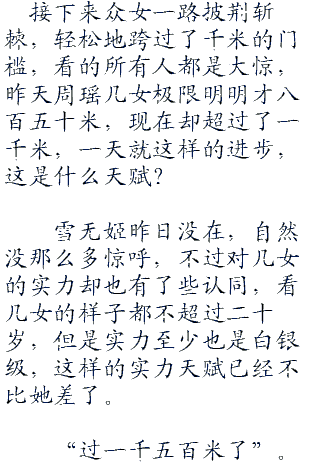 接下来众女一路披荆斩
棘，轻松地跨过了千米的门
槛，看的所有人都是大惊，
昨天周瑶几女极限明明才八
百五十米，现在却超过了一
千米，一天就这样的进步，
这是什么天赋？
雪无姬昨日没在，自然
没那么多惊呼，不过对几女
的实力却也有了些认同，看
几女的样子都不超过二十
岁，但是实力至少也是白银
级，这样的实力天赋已经不
比她差了。
“过一千五百米了”。